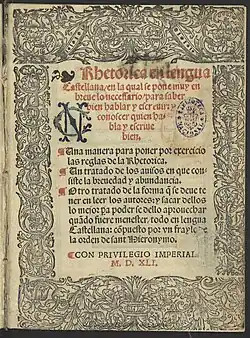 Rhetorica en lengua
Castellana, en la qual se pone muy en
breue lo necessario, para saber
bien hablar y escreuir: y
conoscer quien ha-
bla y escriue
bien.
¶ Una manera para poner por exercicio
las reglas de la Rhetorica.
¶ Un tratado de los auisos en que con-
siste la breuedad y abundancia.
¶ Otro tratado de la forma q̃ se deue te
ner en leer los autores: y sacar dellos
lo mejor pa poder se dello aprouechar
quãdo fuere menester, todo en lengua
Castellana: cõpuesto por vn frayle de
la orden de sant Hieronymo.
¶ CON PRIVILEGIO IMPERIAL.
M. D. XLI.